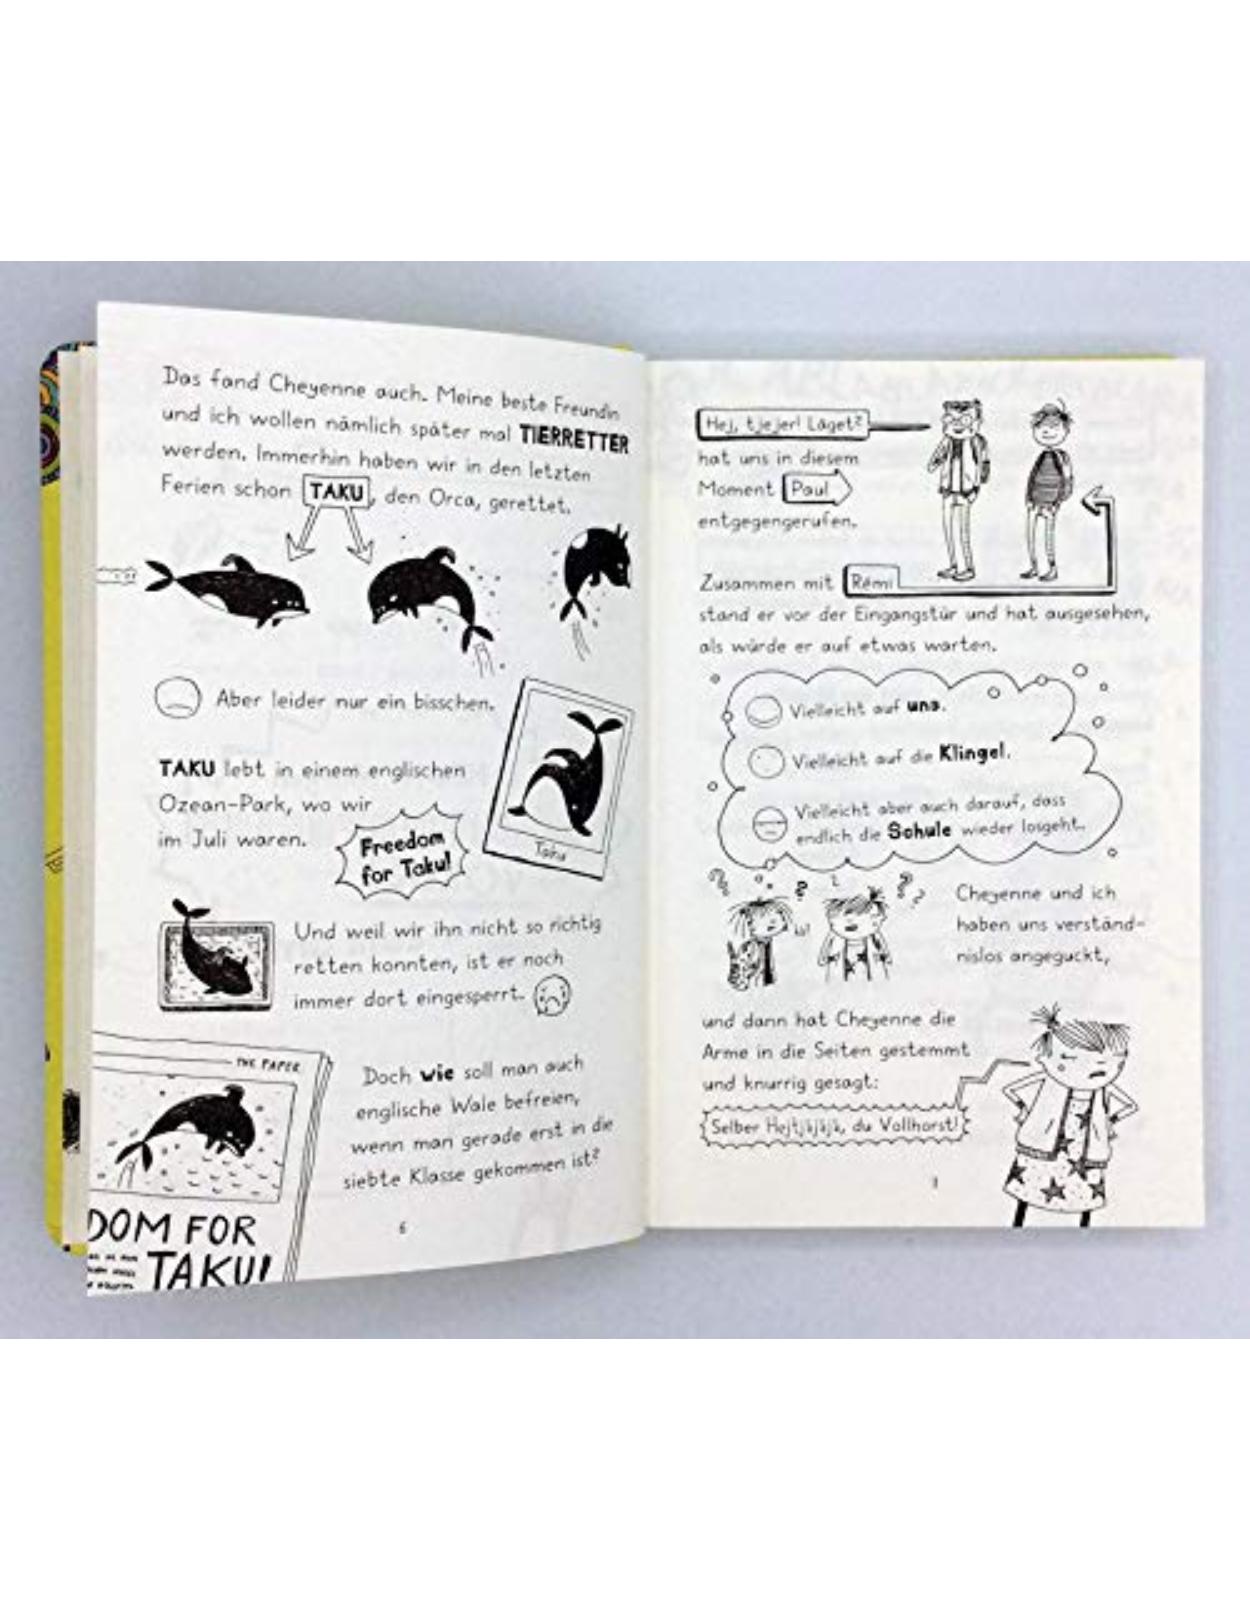 Das fand Cheyenne auch. Meine beste Freundin
und ich wollen nämlich später mal TIERRETTER
werden. Immerhin haben wir in den letzten
Ferien schon TAKU, den Orca, gerettet.
Aber leider nur ein bisschen.
TAKU lebt in einem englischen
Ozean-Park, wo wir
im Juli waren.
Freedom
for Taku!
Taku
Und weil wir ihn nicht so richtig
retten konnten, ist er noch
immer dort eingesperrt.
THE PAPER
DOM FOR
TAKU!
Doch wie soll man auch
englische Wale befreien,
wenn man gerade erst in die
siebte Klasse gekommen ist?
6
Hej, tjejer! Läget?
hat uns in diesem
Moment Paul
entgegengerufen.
Zusammen mit Rémi
stand er vor der Eingangstür und hat ausgesehen,
als würde er auf etwas warten.
Vielleicht auf uns.
Vielleicht auf die Klingel.
Vielleicht aber auch darauf, dass
endlich die Schule wieder losgeht.
Cheyenne und ich
haben uns verständ-
nislos angeguckt,
und dann hat Cheyenne die
Arme in die Seiten gestemmt
und knurrig gesagt:
Selber Hejtjäjäjä, du Vollhorst!